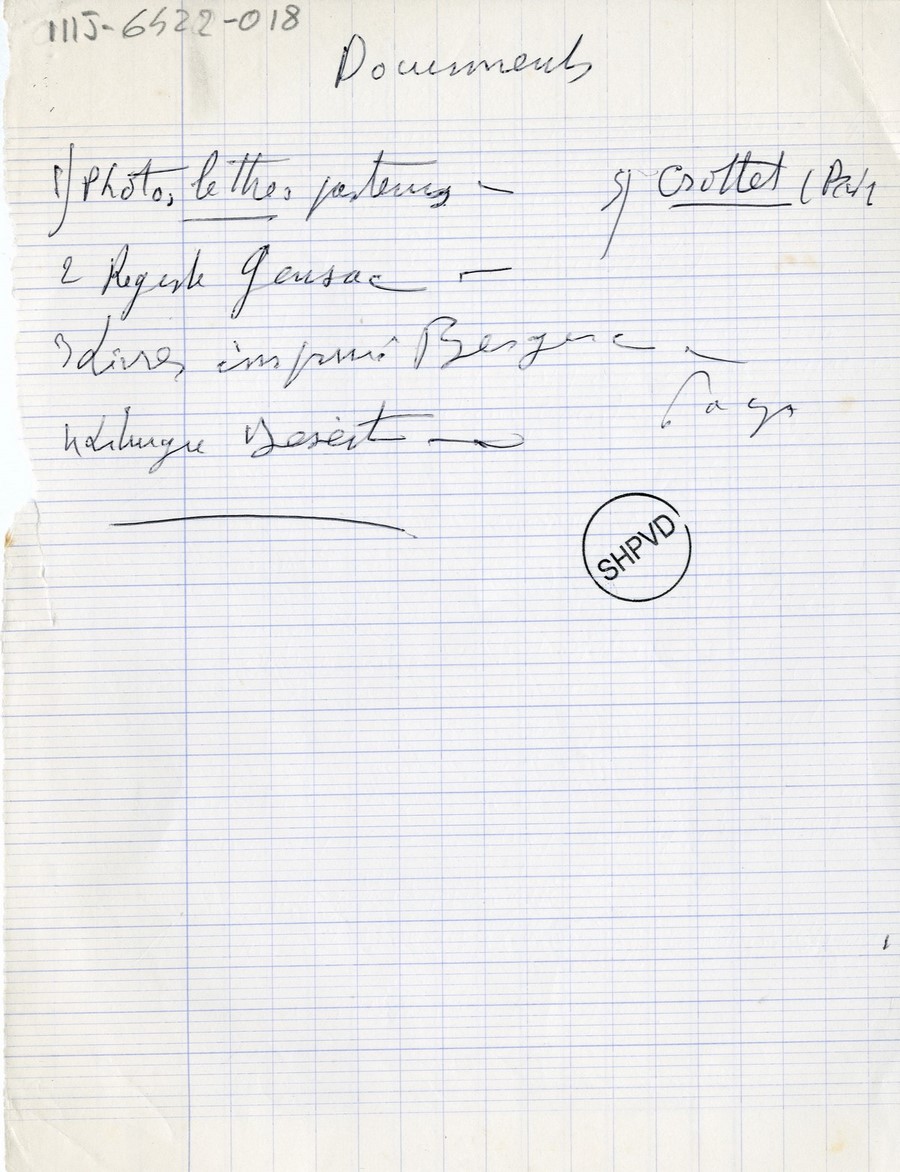 111J-6522-018
Documents
1) Photos lettres pasteurs –
2 Registre Gensac –
3 Livres imprimé Bergerac –
4 Liturgie Désert –
5) Crottet (
Pays
SHPVD